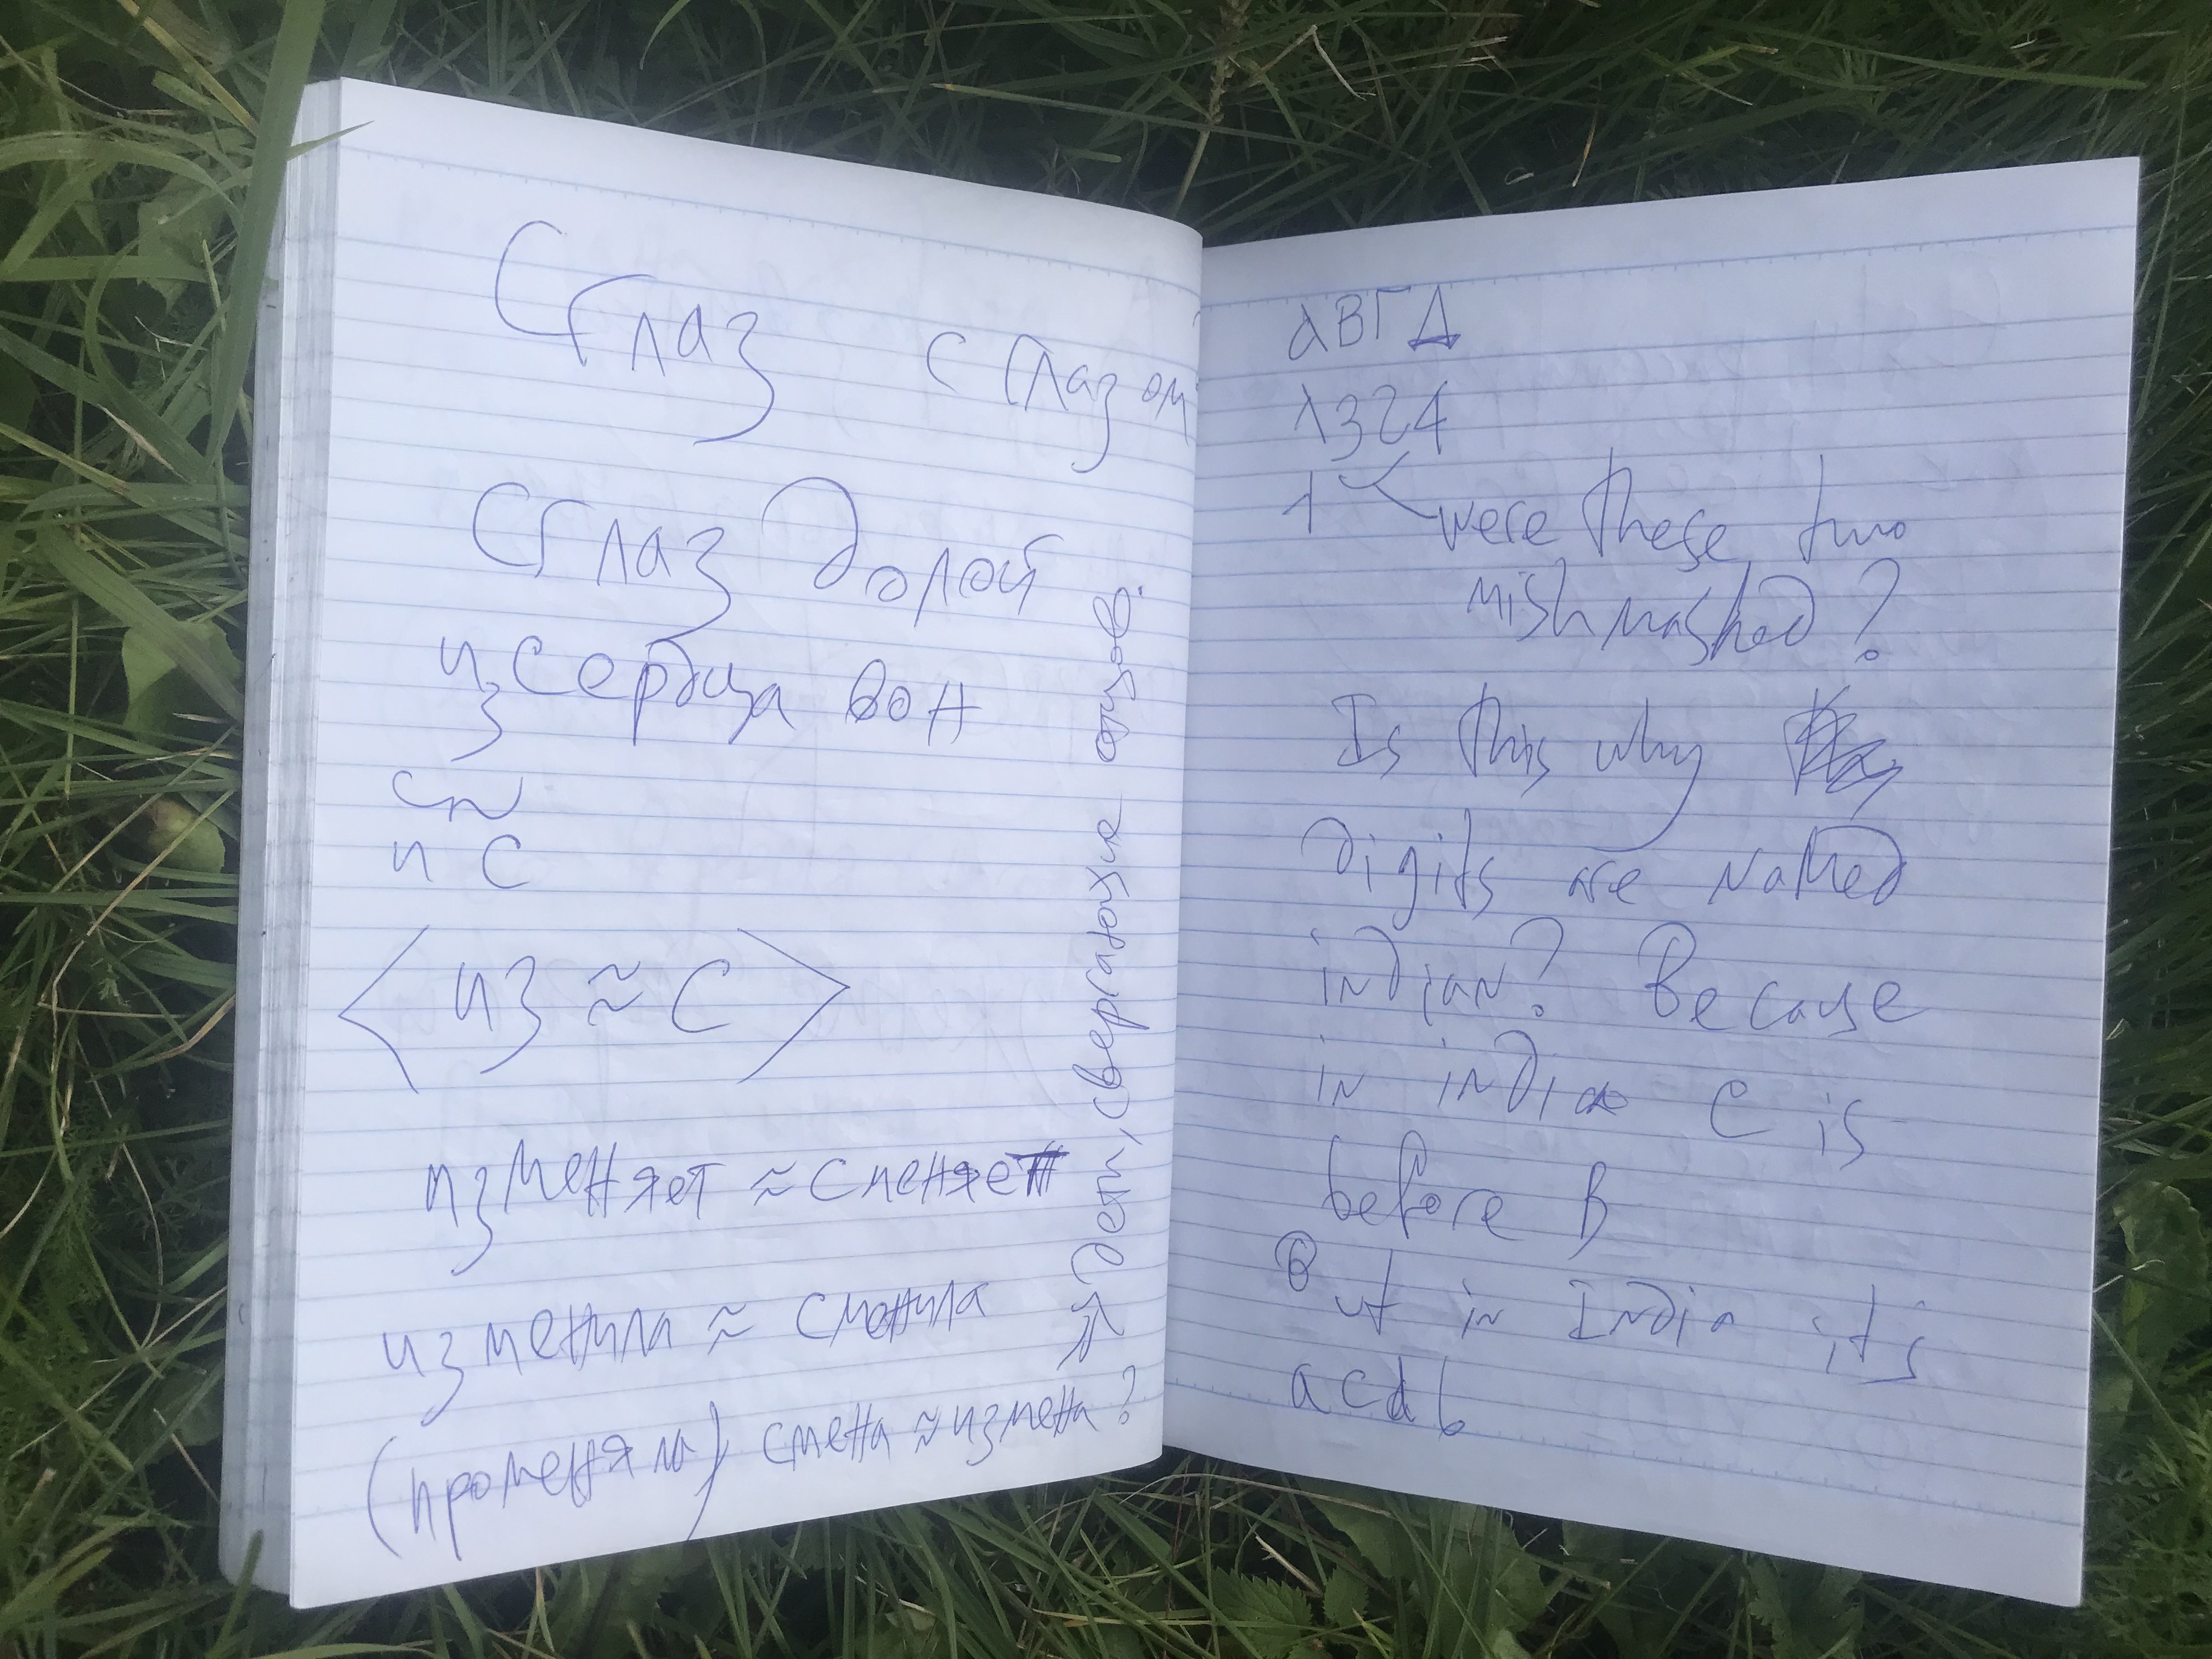 Сглаз сглазить
Сглаз долой
из сердца вон
~
и с
<из ≈ с>
изменяет ≈ сменяет
изменил ≈ сменил
(променял) смена ≈ измена?
Дети, свергающие отцов.
αВГΔ
1324
1 were these two
mishmashed?
Is this why
Digits are Named
indian? Because
in india C is
before B
But in India it's
acdb